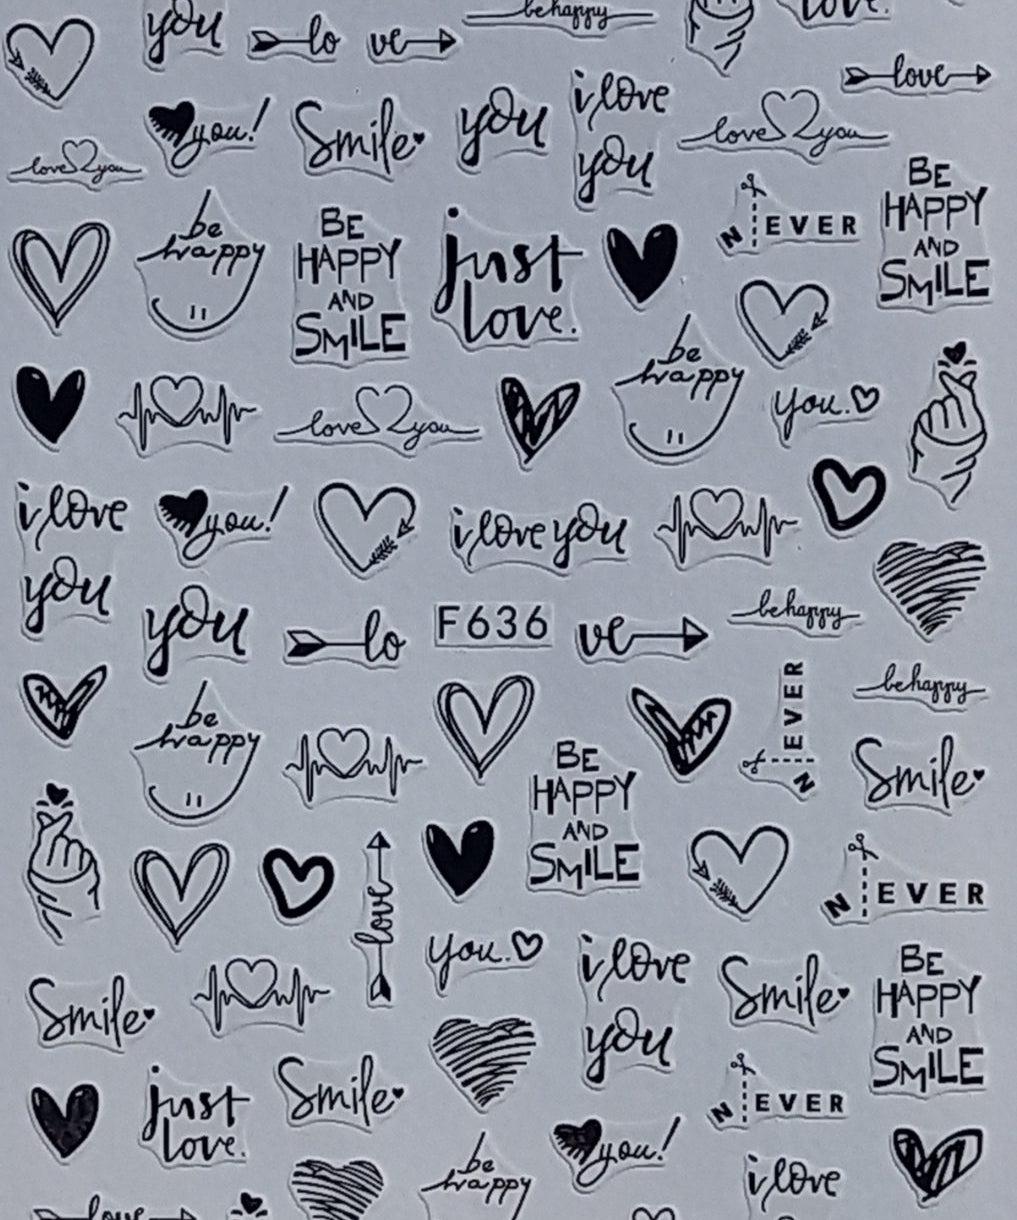 you
lo
ve
be happy
love.
love
you!
Smile
you
i love
you
love you
love you
BE
HAPPY
AND
SMILE
be
happy
BE
HAPPY
AND
SMILE
just
love.
N EVER
be
happy
love you
you.
i love
you
you!
i love you
you
lo
F636
ve
be happy
be
happy
N EVER
be happy
Smile
BE
HAPPY
AND
SMILE
love
N EVER
you.
i love
you
Smile
Smile
BE
HAPPY
AND
SMILE
just
love.
Smile
N EVER
you!
be
happy
i love
love